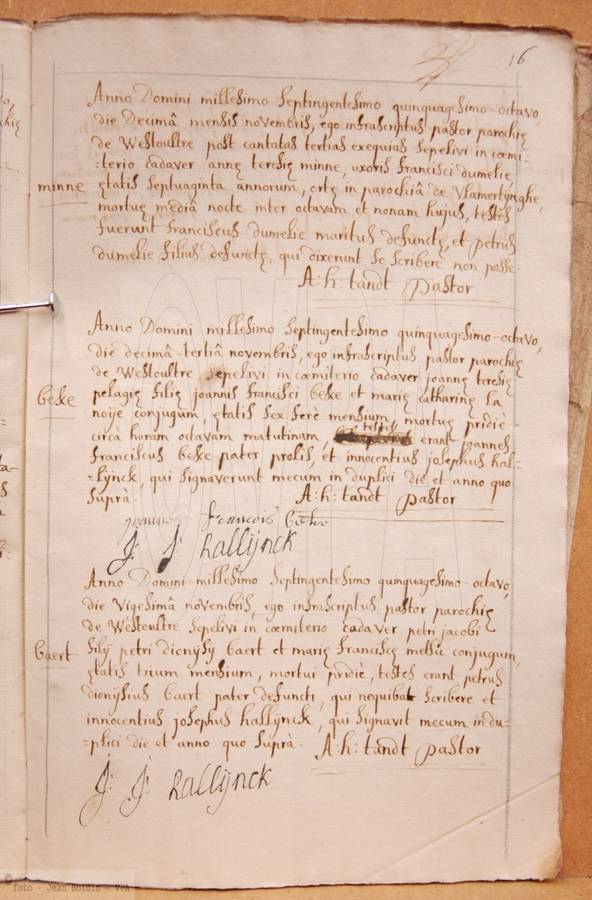 16
Anno Domini millesimo septingentesimo quinquagesimo-octavo,
die Decimâ mensis novembris, ego infrascriptus pastor parochię
de Westoultre post cantatas tertias exequias sepelivi in cœmi-
-terio cadaver annę teresię minne, uxoris francisci dumelie
minne
ętatis septuaginta annorum, ortę in parochiâ de Vlamertÿnghe,
mortuę mediâ nocte inter octavam et nonam hujus, testes
fuerunt franciscus dumelie maritus defunctę, et petrus
dumelie filius defunctę, qui dixerunt se scribere non posse.
A: h: tandt pastor
Anno Domini millesimo septingentesimo quinquagesimo-octavo,
die decimâ-tertiâ novembris, ego infrascriptus pastor parochię
de Westoultre sepelivi in cœmiterio cadaver joannę teresię
beke
pelagię filię joannis francisci beke et marię catharinę la
noije conjugum, ętatis sex ferè mensium, mortuę pridiè
circà horam octavam matutinam, testes erant joannes
franciscus beke pater prolis, et innocentius josephus hal-
-lÿnck, qui signaverunt mecum in duplici die et anno quo
suprà.
A: h: tandt pastor
francois
J: J: hallÿnck
Anno Domini millesimo septingentesimo quinquagesimo-octavo,
die Vigesimâ novembris, ego infrascriptus pastor parochię
de Westoultre sepelivi in cœmiterio cadaver petri jacobi
baert
filij petri dionÿsij baert et marię franciscę conjugum,
ętatis trium mensium, mortui pridiè, testes erant petrus
dionÿsius baert pater defuncti, qui nequibat scribere et
innocentius josephus hallÿnck, qui signavit mecum in du-
-plici die et anno quo suprà.
A: h: tandt pastor
J: J: hallÿnck
© foto - Jean Bordin - VVA